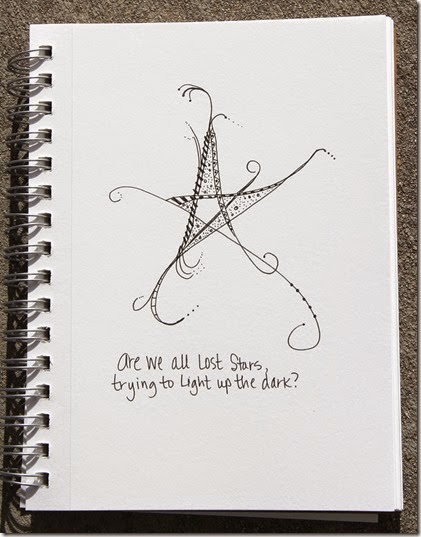 Are we all Lost Stars,
trying to Light up the dark?